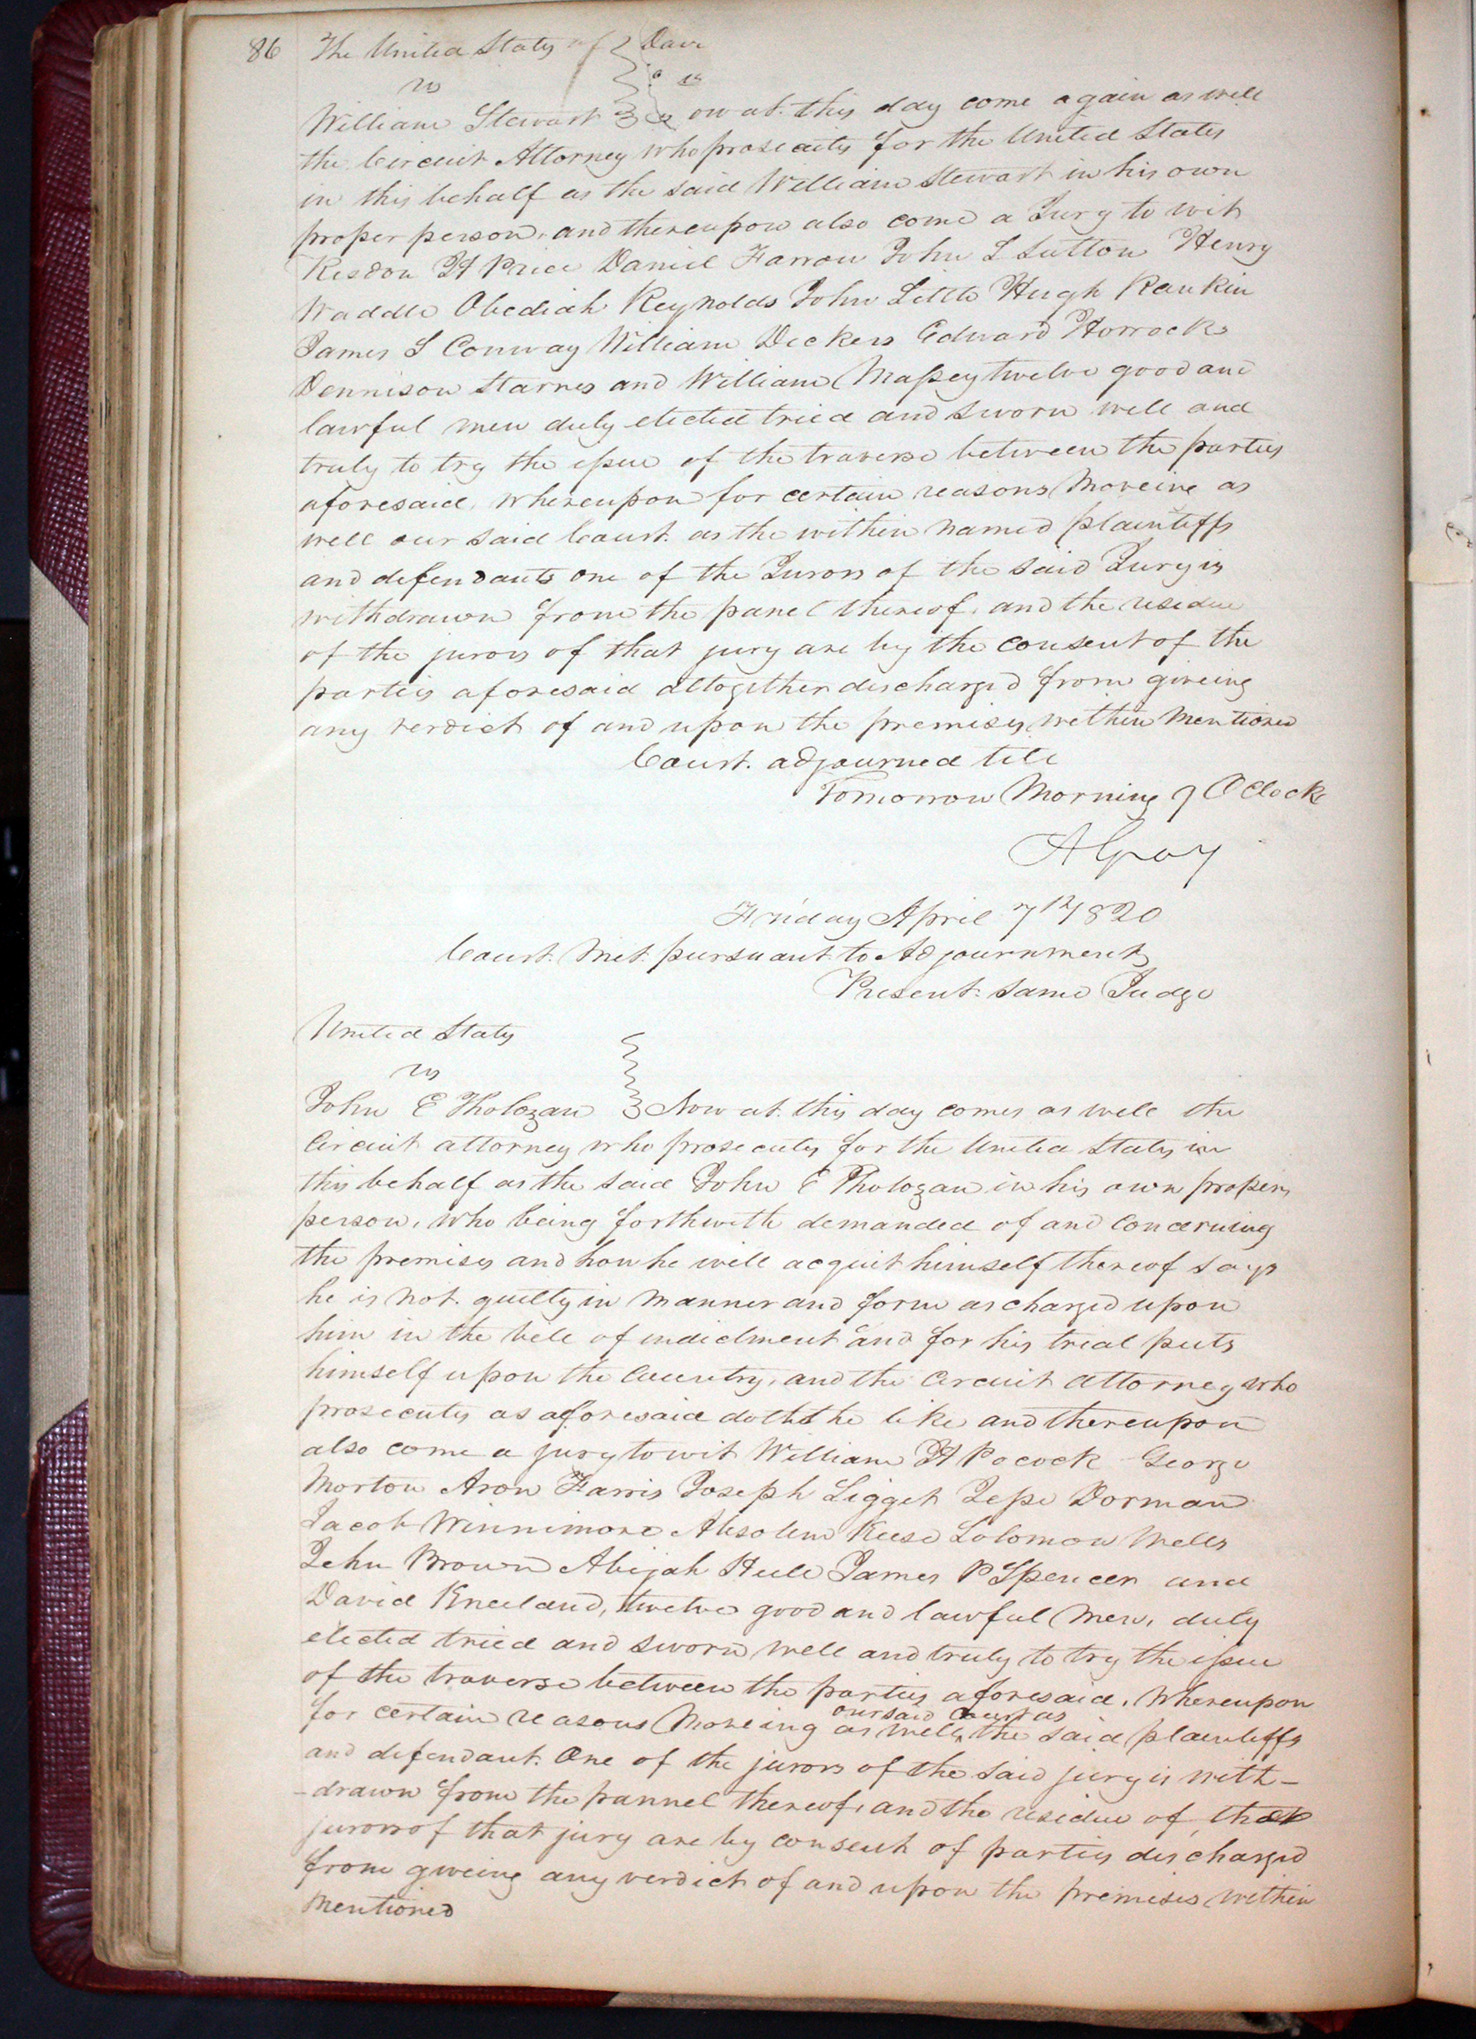 86 The United States
vs
William Stewart Now at this day come again as well
the Circuit Attorney who prosecutes for the United States
in this behalf as the said William Stewart in his own
proper person, and thereupon also come a Jury to wit
Risdon H Price Daniel Farrow John L Sutton Henry
Waddle Obediah Reynolds John Little Hugh Rankin
James S Conway William Deckers Edward Horrocks
Dennison Starnes and William Massey twelve good and
lawful men duly elected tried and sworn well and
truly to try the issue of the traverse between the parties
aforesaid, whereupon for certain reasons moveing as
well our said Court as the within named plaintiffs
and defendants one of the Jurors of the said Jury is
withdrawn from the panel thereof, and the residue
of the jurors of that jury are by the consent of the
parties aforesaid altogether discharged from giveing
any verdict of and upon the premises within mentioned
Court adjourned till
Tomorrow Morning 9 OClock
A Gray
Friday April 7th 1820
Court Met pursuant to Adjournment
Present same Judge
United States
vs
John E Tholozan Now at this day comes as well the
Circuit attorney who prosecutes for the United States in
this behalf as the said John E Tholozan in his own proper
person, who being forthwith demanded of and concerning
the premises and how he will acquit himself thereof says
he is not guilty in manner and form as charged upon
him in the bill of indictment and for his trial puts
himself upon the Country, and the Circuit attorney who
prosecutes as aforesaid doth the like and thereupon
also come a jury to wit William H Pocock George
Morton Aron Farris Joseph Ligget Jesse Dorman
Jacob Winnimore Absolem Keese Solomon Wells
John Brown Abijah Hull James P Spencer and
David Kneeland, twelve good and lawful men, duly
elected tried and sworn well and truly to try the issue
of the traverse between the parties aforesaid. Whereupon
our said Court as
for certain reasons moveing as well the said plaintiffs
and defendant. One of the jurors of the said jury is with-
-drawn from the pannel thereof, and the residue of the
jurors of that jury are by consent of parties discharged
from giveing any verdict of and upon the premises within
mentioned